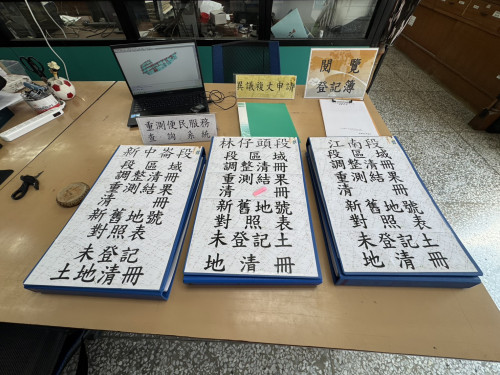 異議複丈申請
閱覽
登記簿
重測便民服務
查詢系統
新中崙段
段區域
調整清冊
重測結果
清冊
新舊地號
對照表
未登記
土地清冊
林仔頭段
段區域
調整清冊
重測結果
清冊
新舊地號
對照表
未登記土
地清冊
江南段
段區域
調整清冊
重測結果
清冊
新舊地號
對照表
未登記土
地清冊